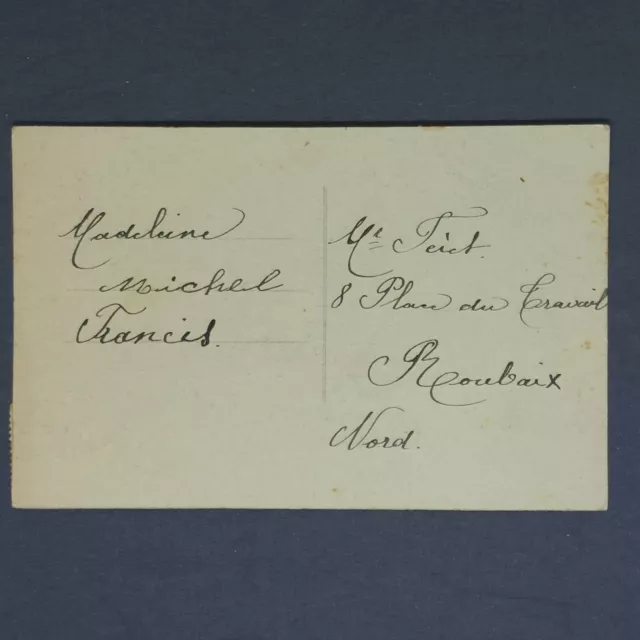 Madeleine
Michel
Francis.
Mr
8 Place du Travail
Roubaix
Nord.